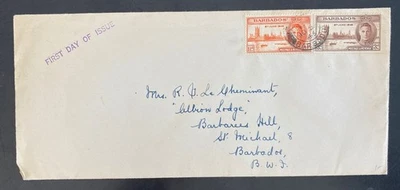 FIRST DAY OF ISSUE
BARBADOS
BARBADOS
Mrs. R. V. Le Cheminant,
"Albion Lodge",
Barbarees Hill,
St Michael, 8
Barbados,
B.W.I.